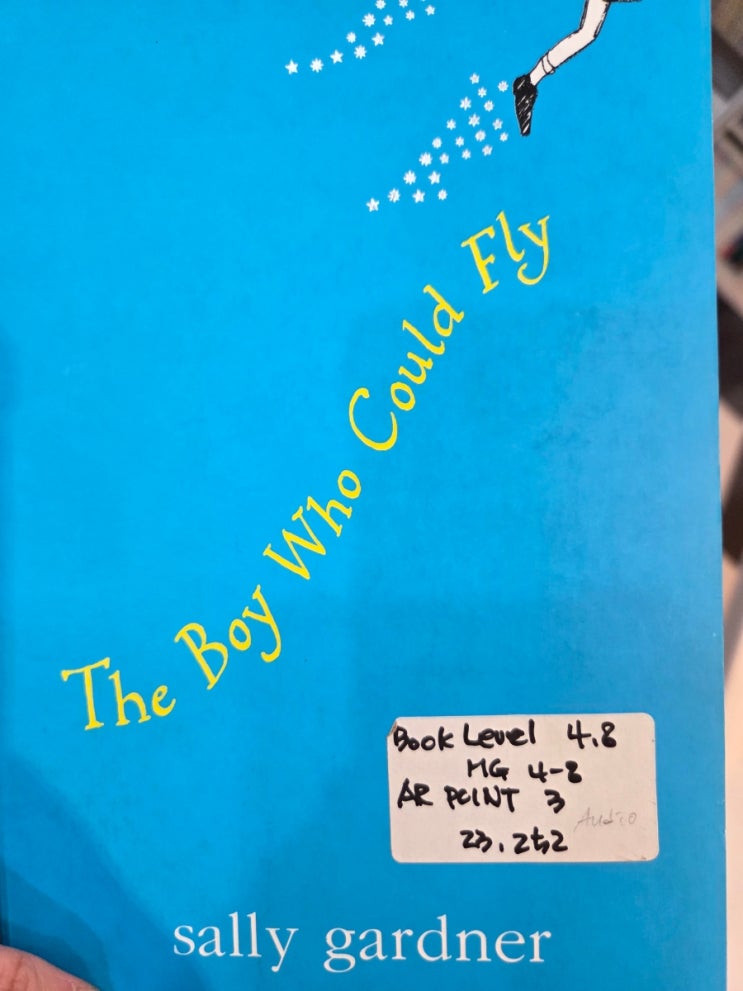 The Boy Who Could Fly
Book Level 4.8
MG 4-8
AR POINT 3
Audio
sally gardner